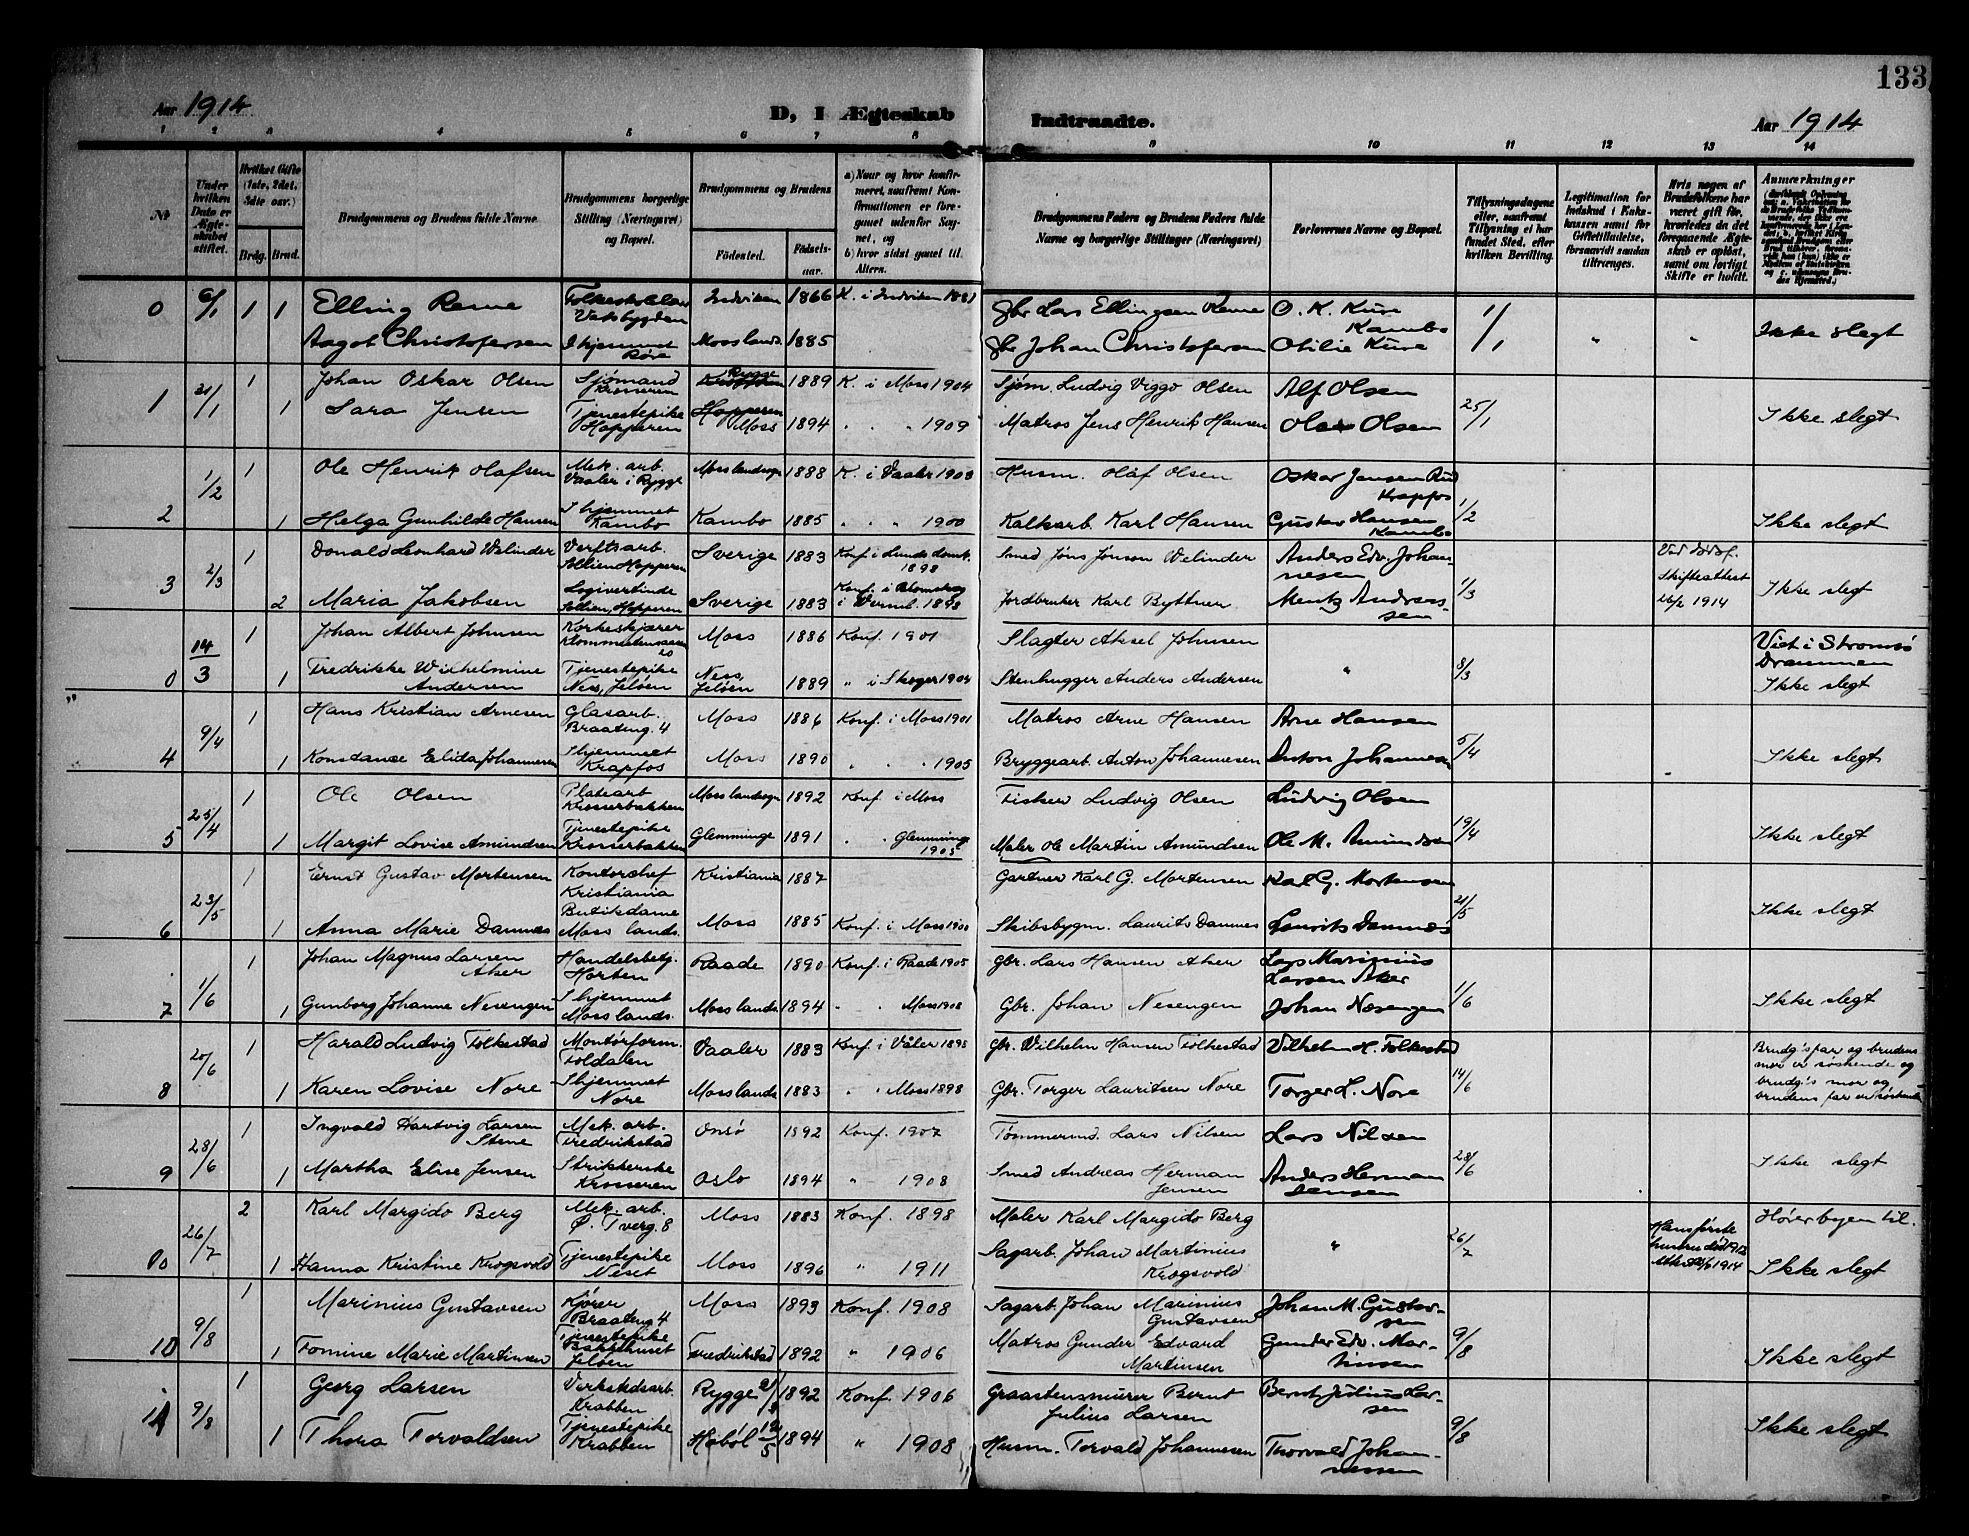 133
Aar 1914
D, I Ægteskab Indtraadte.
Aar 1914
1 2 3 4 5 6 7 8 9 10 11 12 13 14
№
Under hvilken Dato er Ægteskabet stiftet.
Hvilket Gifte (1ste, 2det, 3die osv.)
Brdg. Brud.
Brudgommens og Brudens fulde Navne.
Brudgommens borgerlige Stilling (Næringsvei) og Bopæl.
Brudgommens og Brudens
Fødested. Fødselsaar.
a) Naar og hvor konfirmeret, saafremt Konfirmationen er foregaaet udenfor Sognet, og
b) hvor sidst gaaet til Alters.
Brudgommens Faders og Brudens Faders fulde Navne og borgerlige Stillinger (Næringsvei)
Forlovernes Navne og Bopæl.
Tillysningsdagene eller, saafremt Tillysning ei har fundet Sted, efter hvilken Bevilling.
Legitimation for Indskud i Enkekassen samt for Giftetilladelse, forsaavidt saadan tiltrænges.
Hvis nogen af Brudefolkene har været gift før, hvorledes da det foregaaende Ægteskab er opløst, samt om lovligt Skifte er holdt.
Anmærkninger
0 6/1 1 1 Elling Reme Indviken 1866 K. i Indviken 1881 Gbr Lars Ellingsen Reme O. K. Kure Kambo 1/1
Vatsbygden
Aagot Christofersen I hjemmet Mosslands 1885 Gbr Johan Christofersen Otilie Kure " " Ikke slegt
1 21/1 1 Johan Oskar Olsen Sjømand Krosseren Rygge 1889 K. i Moss 1904 Sjøm. Ludvig Viggo Olsen Alf Olsen 25/1
1 Sara Jensen Tjenestepike Hopperen Hopperen Moss 1894 " " 1909 Matros Jens Henrik Hansen Olaf Olsen Ikke slegt
2 1/2 1 Ole Henrik Olafsen Mek. arb. Vaaler i Rygge Moss landsogn 1888 K. i Vaaler 1903 Husm. Olaf Olsen Oskar Jensen Rud Krapfos 1/2
1 Helga Gunhilde Hansen I hjemmet Kambo Kambo 1885 " " 1900 Kalkarb. Karl Hansen Gustav Hansen Kambo Ikke slegt
3 2/3 1 Donald Leonhard Welinder Verftsarb. Sollien Hopperen Sverige 1883 Konf. i Lunds Domk. 1898 Smed Jøns Jönson Welinder Anders Edv. Johannesen 1/3 Ved dødsf. Skifteattest 26/2 1914
2 Maria Jakobsen Logivertinde Sollien, Hopperen Sverige 1883 Jordbruker Karl Byttner Mentz Andreassen Ikke slegt
0 14/3 1 Johan Albert Johnsen Moss 1886 Konf. 1901 Slagter Aksel Johnsen 8/3 Viet i Strømsø Drammen
1 Fredrikke Wilhelmine Andersen Tjenestepike Nes, Jeløen Ness, Jeløen 1889 " i Skoger 1904 Stenhugger Anders Andersen " Ikke slegt
4 9/4 1 Hans Kristian Arnesen Glasarb. Braateng. 4 Moss 1886 Konf. i Moss 1901 Matros Arne Hansen Arne Hansen 5/4
1 Konstanse Elida Johannesen I hjemmet Krapfos Moss 1890 " " 1905 Bryggearb. Anton Johannesen Anton Johannesen Ikke slegt
5 25/4 1 Ole Olsen Platearb Krosserbakken Moss landsogn 1892 Konf. i Moss Fisker Ludvig Olsen Ludvig Olsen 19/4
1 Margit Lovise Amundsen Tjenestepike Krosserbakken Glemminge 1891 " " Glemminge 1905 Maler Ole Martin Amundsen Ole M. Amundsen Ikke slegt
6 23/5 1 Ernst Gustav Mortensen Kontorchef Kristiania Kristiania 1887 Gartner Karl G. Mortensen Karl G. Mortensen 21/5
1 Anna Marie Damnes Butiksdame Moss lands. Moss 1885 Konf. i Moss 1900 Skibsbygm. Laurits Damnes Laurits Damnes Ikke slegt
7 1/6 1 Johan Magnus Larsen Aker Handelsbetj. Horten Raade 1890 Konf. i Raade 1905 Gbr. Lars Hansen Aker Lars Marinius Larsen Aker 1/6
1 Gunborg Johanne Nesengen I hjemmet Moss lands. Moss lands. 1894 " " Moss 1908 Gbr. Johan Nesengen Johan Nesengen Ikke slegt
8 20/6 1 Harald Ludvig Folkestad Montörform. Foldalen Vaaler 1883 Konf. i Våler 1898 Gbr. Wilhelm Hansen Folkestad Vilhelm H. Folkestad 14/6 Brudg's far og brudens mor er søskende og brudg's mor og brudens far er søskende
1 Karen Lovise Nore I hjemmet Nore Moss lands 1883 " " Moss 1898 Gbr. Torger Lauritsen Nore Torger L. Nore
9 28/6 1 Ingvald Hartvig Larsen Stene Mek. arb. Fredrikstad Onsö 1892 Konf. 1907 Tømmermd. Lars Nilsen Lars Nilsen 28/6
1 Martha Elise Jensen Strikkerske Krosseren Oslo 1894 " 1908 Smed Andreas Herman Jensen Anders Herman Jensen Ikke slegt
00 26/7 2 Karl Margido Berg Mek. arb. Ø. Tverg. 8 Moss 1883 Konf. 1898 Maler Karl Margido Berg 26/7 Hører byen til.
1 Hanna Kristine Krogsvold Tjenestepike Neset Moss 1896 " 1911 Sagarb. Johan Martinius Krogsvold " Ikke slegt
10 9/8 1 Marinius Gustavsen Kjører Braateng 4 Moss 1893 Konf. 1908 Sagarb. Johan Marinius Gustavsen Johan M. Gustavsen 9/8
1 Fomine Marie Martinsen Tjenestepike Bakkehuset Jeløen Fredrikstad 1892 " 1906 Matros Gunder Edvard Martinsen Gunder Edv. Martinsen Ikke slegt
11 9/8 1 Georg Larsen Verkstedsarb. Krabben Rygge 1892 Konf. 1906 Graastensmurer Bernt Julius Larsen Bernt Julius Larsen 9/8
1 Thora Torvaldsen Tjenestepike Krabben Høböl 12/5 1894 " 1908 Husm. Torvald Johannesen Thorvald Johannessen Ikke slegt